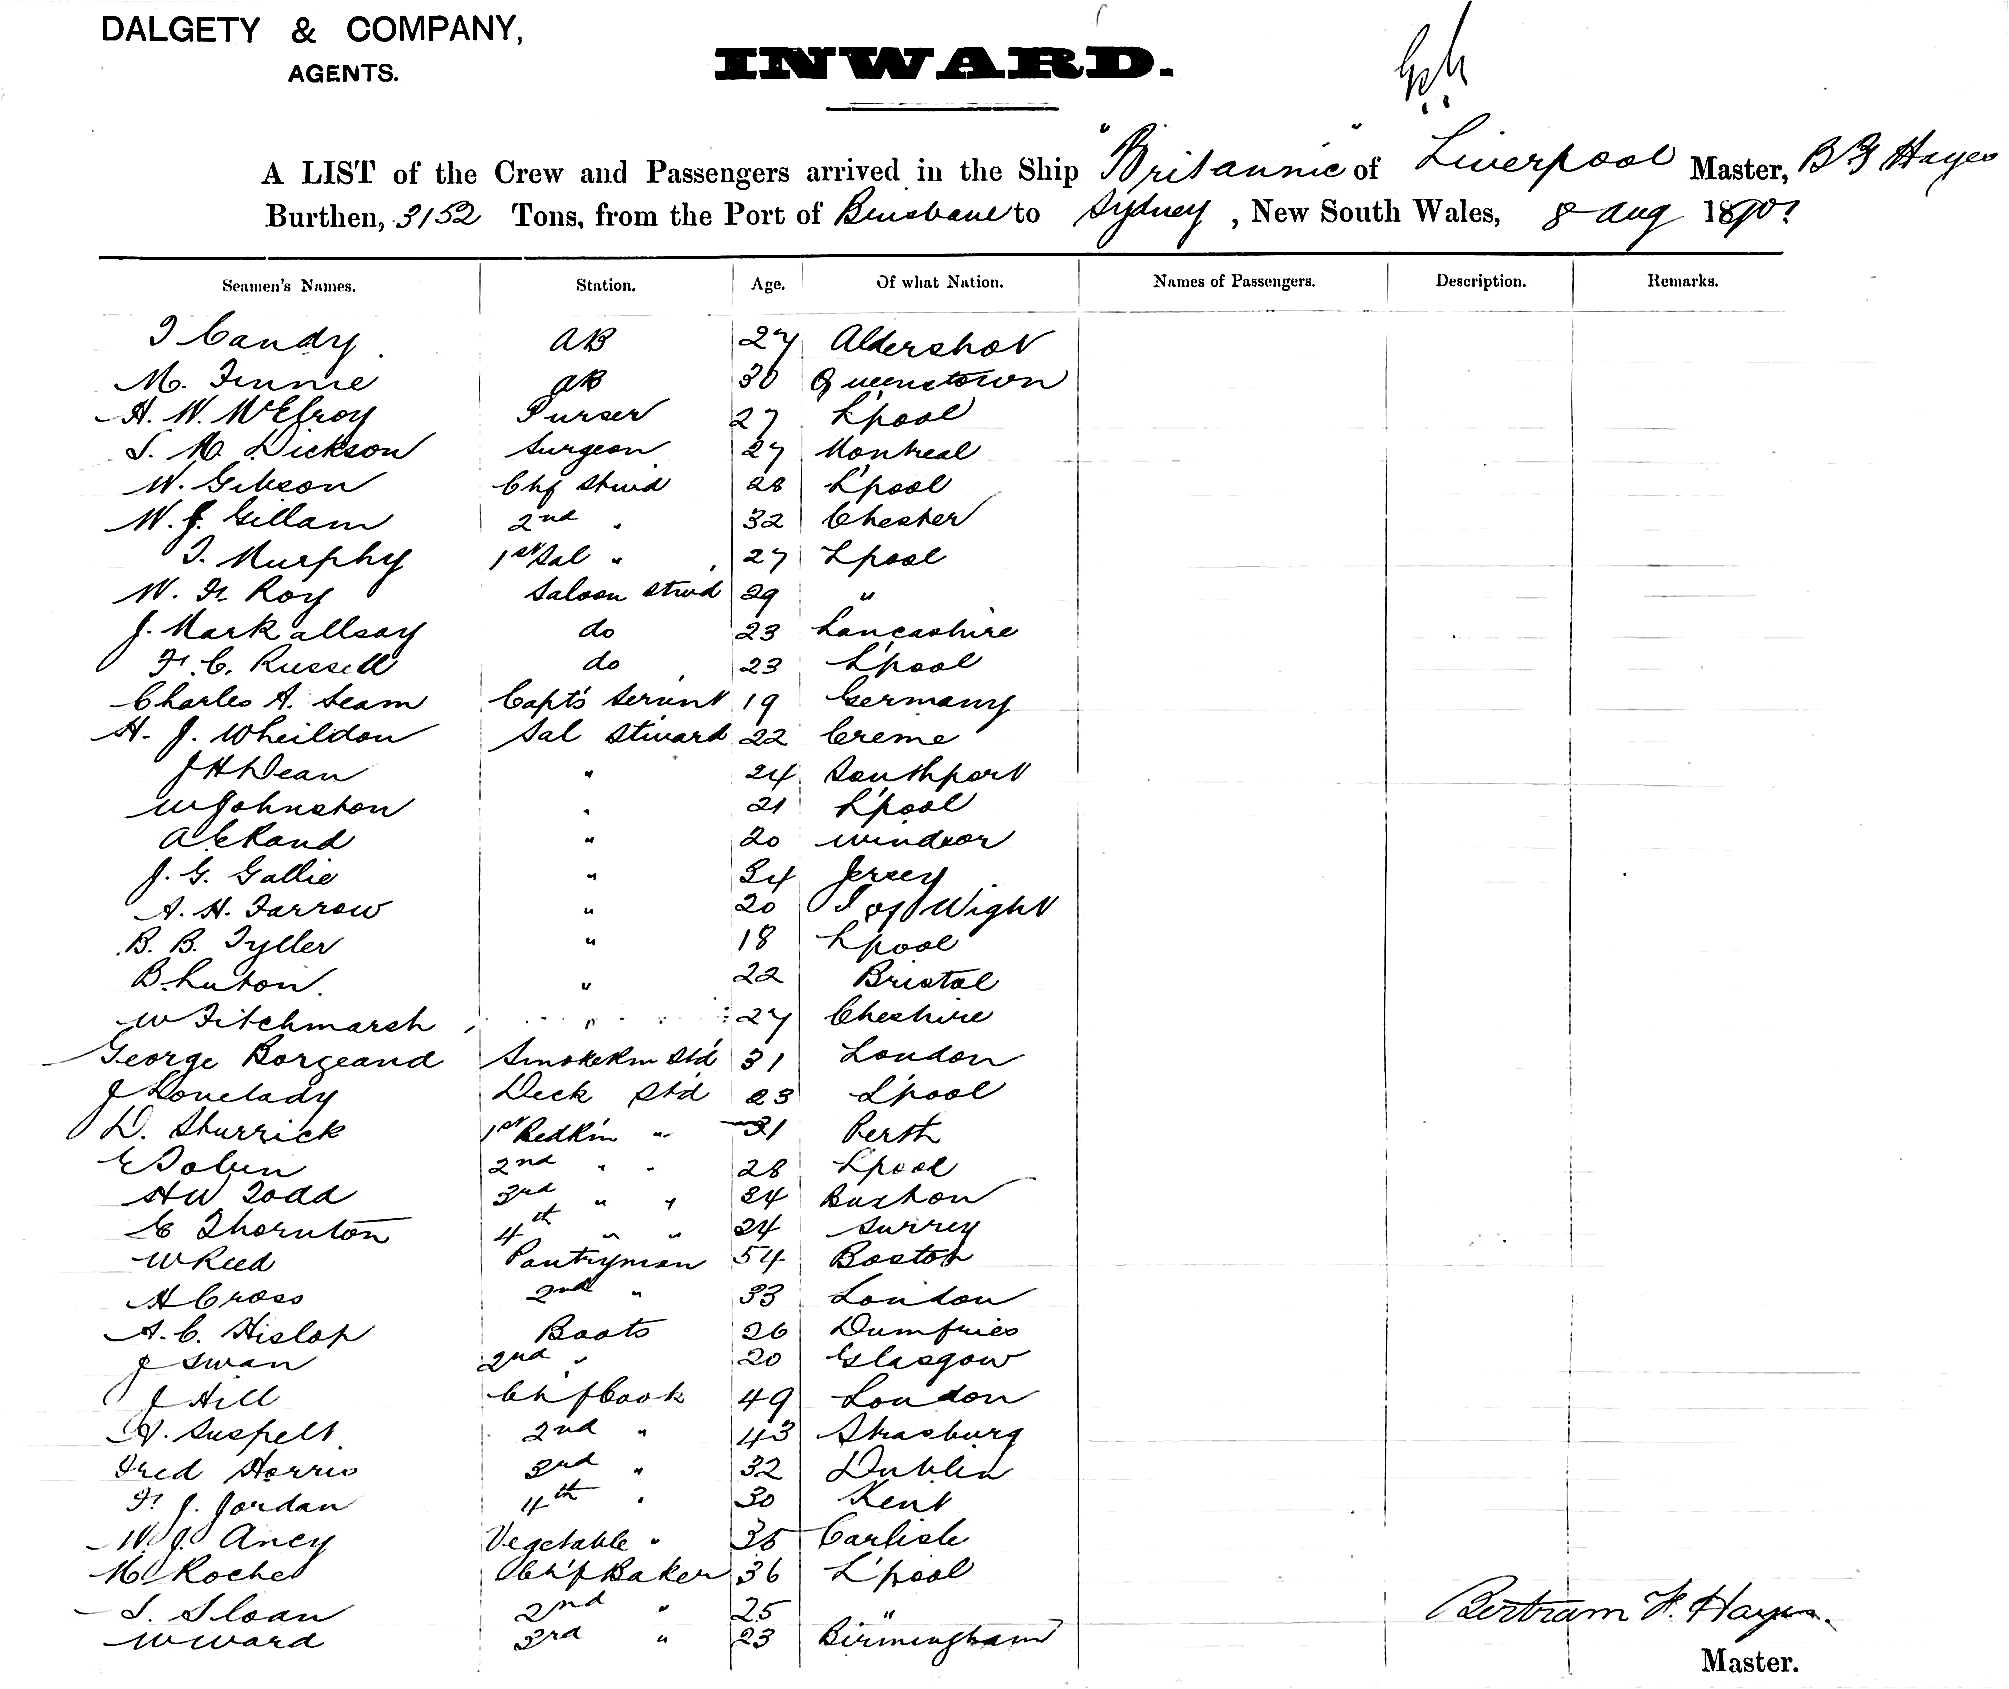 DALGETY & COMPANY,
AGENTS.
INWARD.
A LIST of the Crew and Passengers arrived in the Ship "Britannic" of Liverpool Master, B F Hayes
Burthen, 3152 Tons, from the Port of Brisbane to Sydney, New South Wales, 8 Aug 1890?
Seamen's Names. Station. Age. Of what Nation. Names of Passengers. Description. Remarks.
T Candy AB 27 Aldershot
M. Finnie AB 30 Queenstown
H. W. McElroy Purser 27 L'pool
S. M. Dickson Surgeon 27 Montreal
W. Gibson Chf Stwd 28 L'pool
W. J. Gillam 2nd " 32 Chester
T. Murphy 1st Sal " 27 Lpool
W. F. Roy Saloon Stwd 29 "
J. Mark allsay do 23 Lancashire
F. C. Russell do 23 L'pool
Charles A. Seam Capt's Servnt 19 Germany
H. J. Wheildon Sal Stiward 22 Creme
J H Dean " 24 Southport
W Johnston " 21 L'pool
A E Rand " 20 Windsor
J. G. Gallie " 34 Jersey
A. H. Farrow " 20 I of Wight
B. B. Tyller " 18 Lpool
B. Luton. " 22 Bristol
W Fitchmarsh " 27 Cheshire
George Borgeand SmokeRm Std 31 London
J Lovelady Deck Std 23 L'pool
D. Sturrick 1st BedRm " 31 Perth
E Tobin 2nd " " 28 Lpool
H W Todd 3rd " " 24 Buxton
E Thornton 4th " " 24 Surrey
W Reed Pantryman 54 Boston
H Cross 2nd " 33 London
A. C. Hislop Boots 26 Dumfries
J Swan 2nd " 20 Glasgow
J Hill Ch'f Cook 49 London
A. Suspelt 2nd " 43 Strasburg
Fred Harris 3rd " 32 Dublin
F J. Jordan 4th " 30 Kent
W. J. Aney Vegetable " 35 Carlisle
M Roche Ch'f Baker 36 L'pool
S. Sloan 2nd " 25 "
W Ward 3rd " 23 Birmingham
Bertram F. Hayes.
Master.